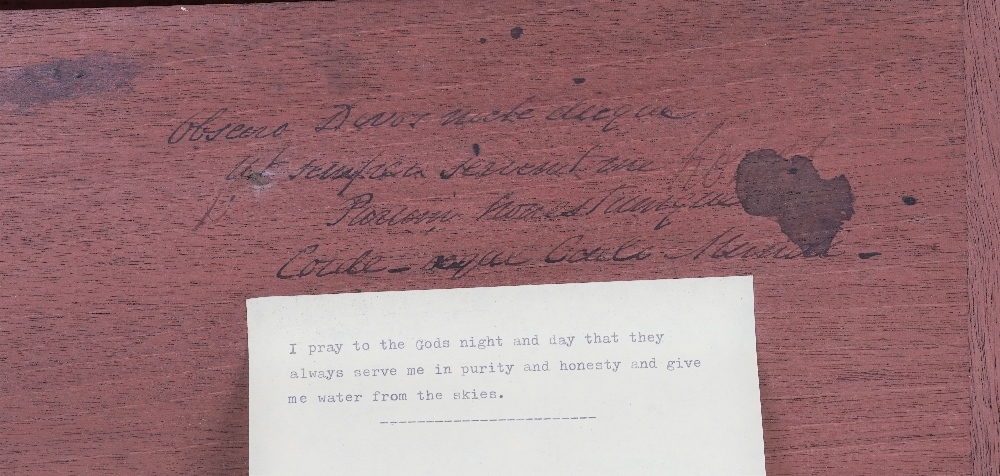 Obsecro Divos nocte dieque
ut semper servent me
honestumque
Corde
I pray to the Gods night and day that they
always serve me in purity and honesty and give
me water from the skies.